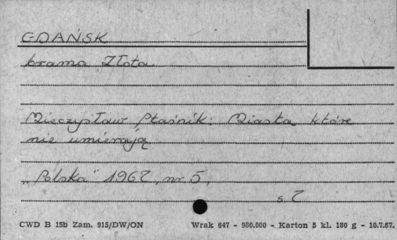 GDAŃSK
brama Złota
Mieczysław Ptaśnik: Miasta które
nie umierają
„Polska" 1967, nr 5,
s. 7
CWD B 15b Zam. 915/DW/ON Wrak 647 - 900.000 - Karton 5 kl. 180 g - 10.7.67.